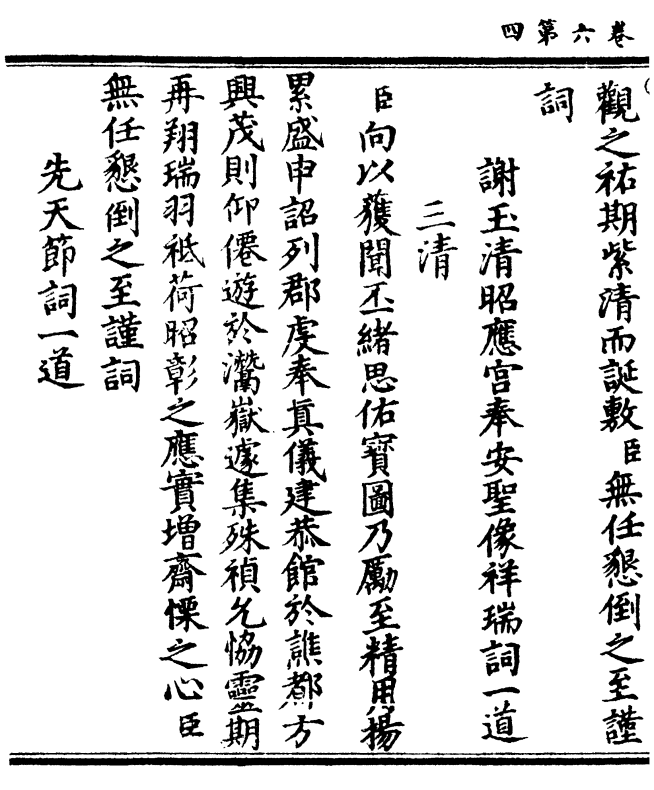 卷六第四
觀之祐期紫清而誕敷臣無任懇倒之至謹
詞
謝玉清昭應宮奉安聖像祥瑞詞一道
三清
臣向以獲聞丕緒思佑寶圖乃勵至精用揚
累盛申詔列郡虔奉真儀建恭館於譙都方
興茂則仰僊遊於灊嶽遽集殊禎允恊靈期
再翔瑞羽祇荷昭彰之應實增齋慄之心臣
無任懇倒之至謹詞
先天節詞一道